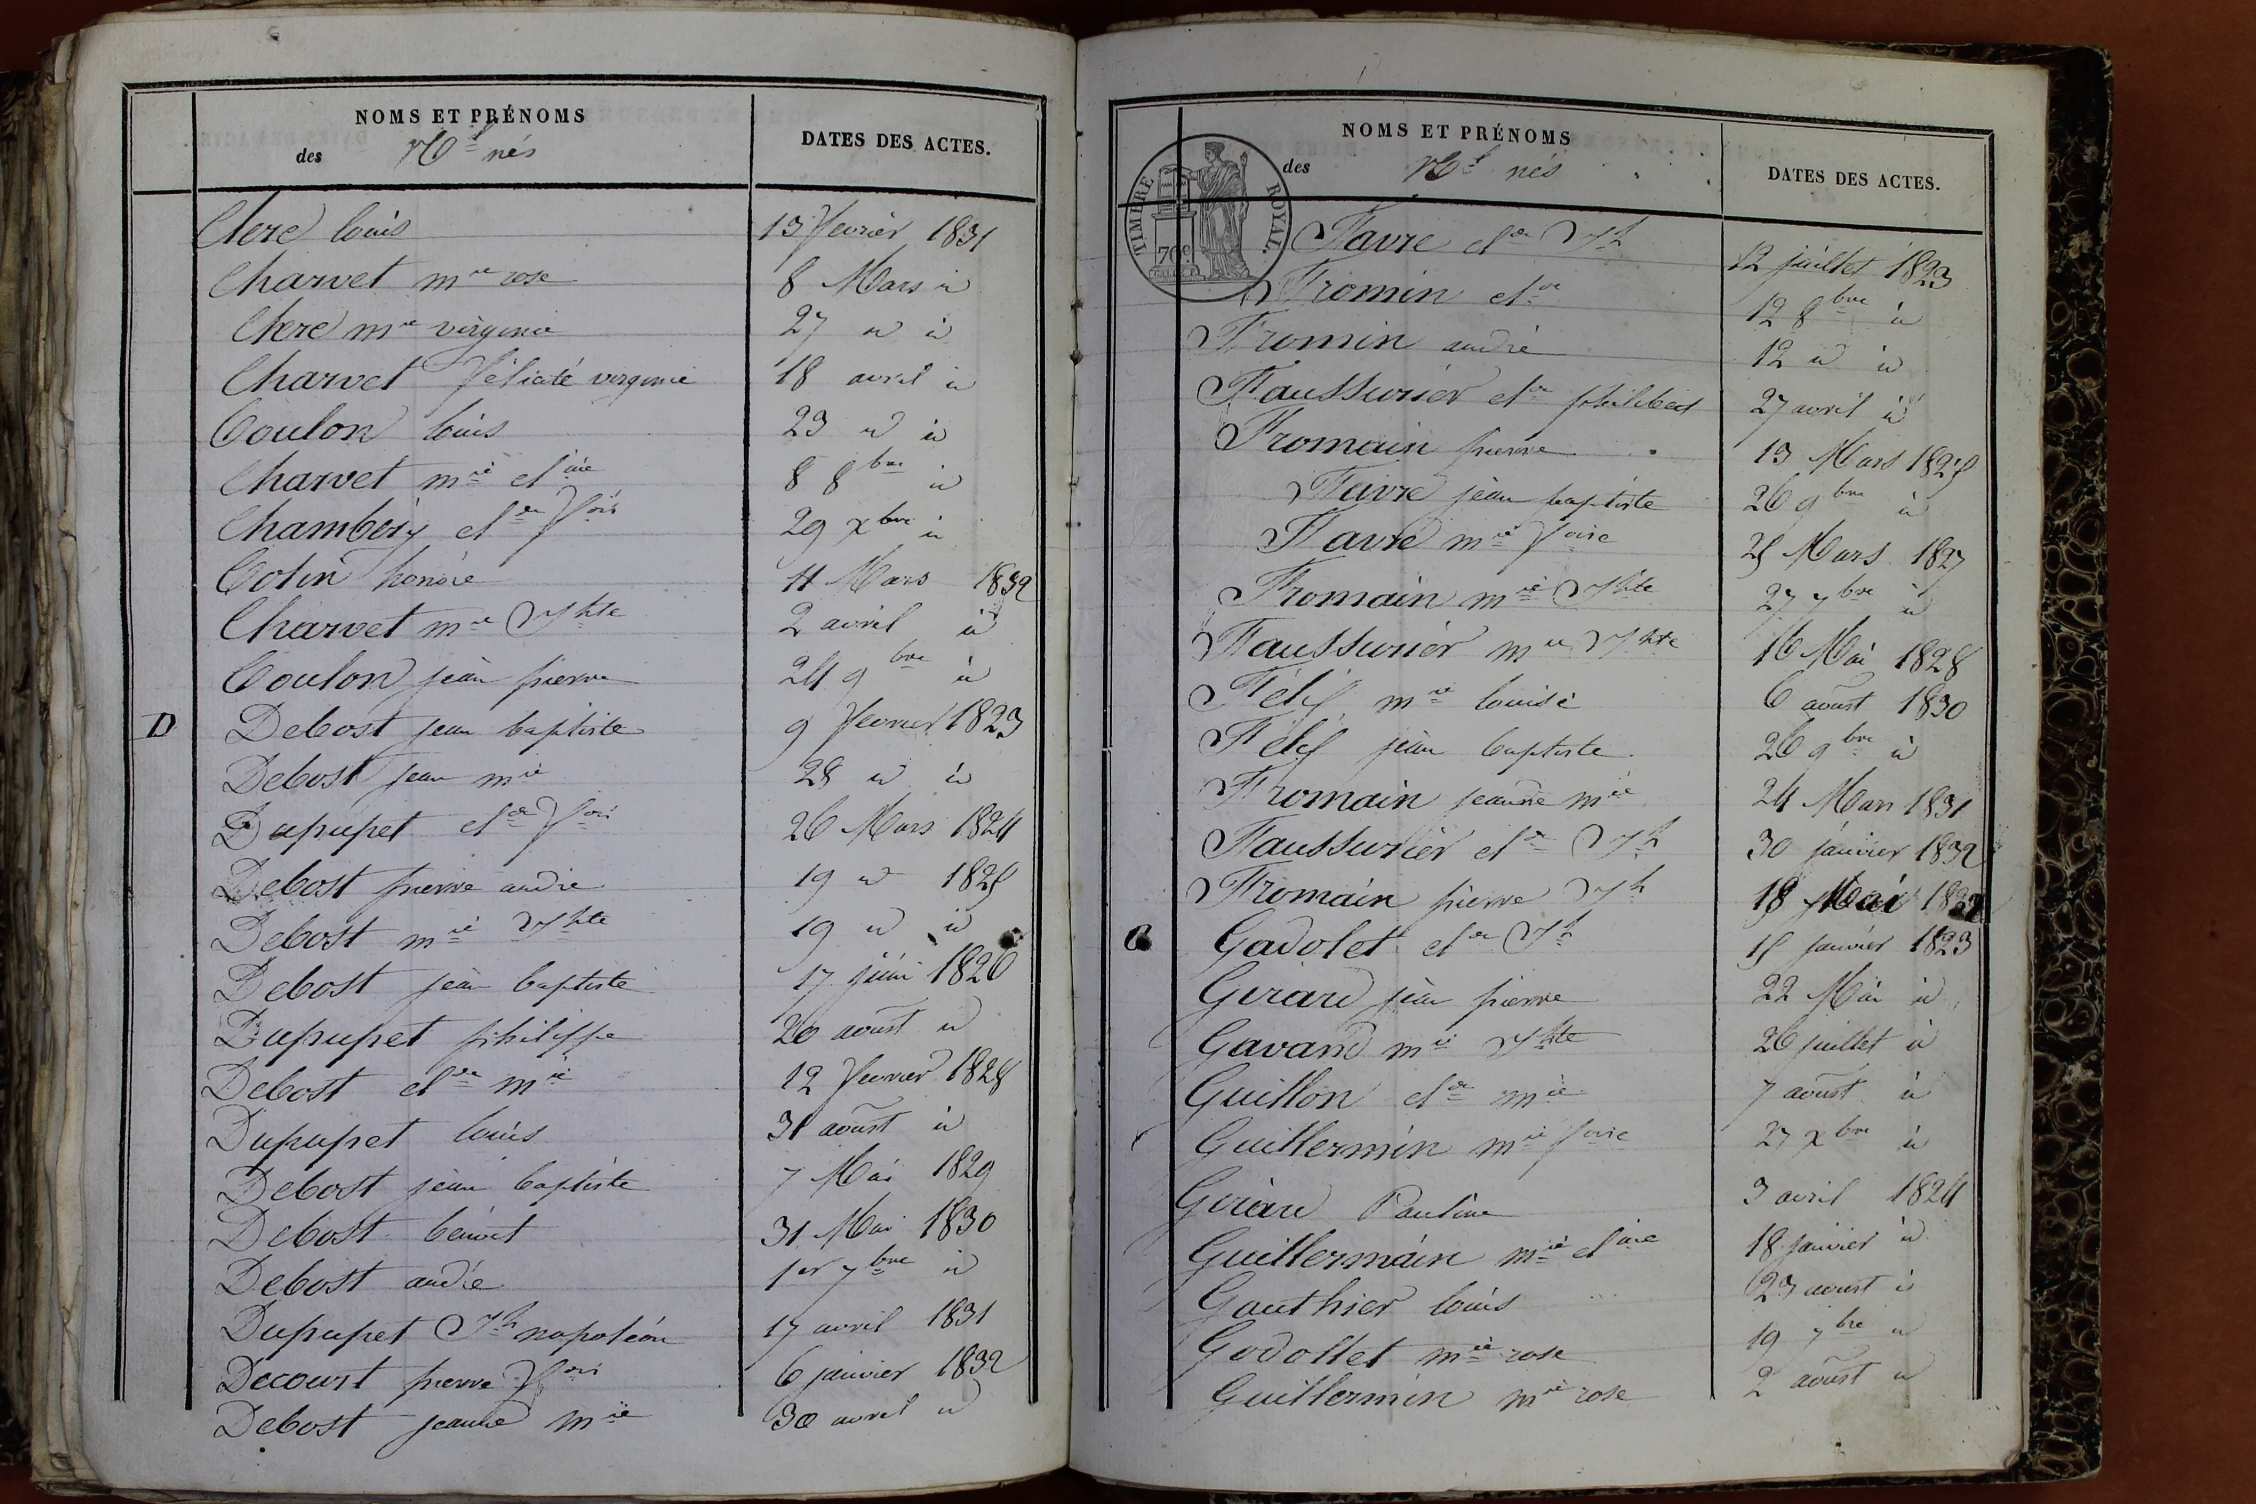 NOMS ET PRÉNOMS
des nés
DATES DES ACTES.
Clere louis 13 fevrier 1831
Charvet mie rose 8 Mars id
Chere mie virginie 27 id id
Charvet félicité virginie 18 avril id
Coulon louis 23 id id
Charvet mie claie 8 8bre id
Chambéry cl de fois 29 xbre id
Cotin honoré 11 Mars 1832
Charvet mie Jhte 2 avril id
Coulon jean pierre 24 9bre id
D Debost jean baptiste 9 fevrier 1823
Debost jean mie 28 id id
Dupupet clde fois 26 Mars 1824
Debost pierre andré 19 id 1825
Debost mie Jhte 19 id id
Debost jean baptiste 17 juin 1826
Dupupet philippe 20 aoust id
Debost clde mie 12 fevrier 1828
Dupupet louis 31 aoust id
Debost jean baptiste 7 Mai 1829
Debost benoit 31 Mai 1830
Debost andré 1er 7bre id
Dupupet Jh napoléon 17 avril 1831
Decourt pierre fois 6 janvier 1832
Debost jeanne mie 30 avril id
NOMS ET PRÉNOMS
des nés
DATES DES ACTES.
TIMBRE ROYAL.
70c
Favre clde Jh 12 juillet 1823
Fromin clde 12 8bre id
Fromin andré 12 id id
Faussurier clde philibert 27 avril id
Fromain pierre 13 Mars 1825
Favre jean baptiste 26 9bre id
Favre mie foise 25 Mars 1827
Fromain mie Jhte 27 7bre id
Faussurier mie Jhte 16 Mai 1828
Félif mie louise 6 aoust 1830
Félif jean baptiste 26 9bre id
Fromain jeanne mie 24 Mars 1831
Faussurier clde Jh 30 janvier 1832
Fromain pierre Jh 18 Mai 1832
G Gadolet clde Jh 15 janvier 1823
Girard jean pierre 22 Mai id
Gavand mie Jhte 26 juillet id
Guillon clde mie 7 aoust id
Guillermin mie foise 27 xbre id
Girard Pauline 3 avril 1824
Guillermain mie claie 18 janvier id
Gauthier louis 23 aoust id
Godollet mie rose 19 7bre id
Guillermin mie rose 2 aoust id